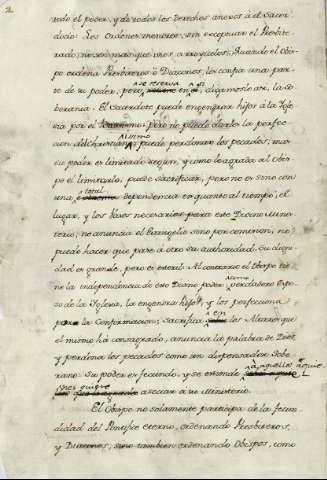 2.
todo el poder, y de todos los derechos anexos á el Sacer
docio. Los Ordenes menores, sin exceptuar el Presbite
rado, no son más que unos arroyuelos. Quando el Obis
po ordena Presbiteros ó Diaconos, les confia una par
te de su poder, pero se reserva en si, digamoslo asi, la so
berania. El Sacerdote puede engendrar hijos á la Igle
sia por el Bautismo: pero no puede darles la perfec
cion del Christianismo; puede perdonar los pecados, mas
su poder es limitado segun, y como le agrada al Obis
po el limitarlo; puede sacrificar, pero no es sino con
una total dependencia en quanto al tiempo, el
lugar, y los Vasos necesarios para este Divino Minis
terio; no anuncia el Evangelio sino por comision; no
puede hacer que pase á otro su authoridad. Su digni
dad es grande, pero es esteril. Al contrario el Obispo tie
ne la independencia de este Divino poder; como verdadero Espo
so de la Iglesia, la engendra hijos, y los perfecciona
por la Confirmacion; sacrifica en los Altares que
el mismo há consagrado, anuncia la palabra de Dios,
y perdona los pecados como un dispensador Sobe
rano. Su poder es fecundo, y se estiende á aquellos á quie
nes quiere asociar á su Ministerio.
El Obispo no solamente participa de la fecun
didad del Pontifice eterno, ordenando Presbiteros,
y Diaconos, sino tambien ordenando Obispos, como